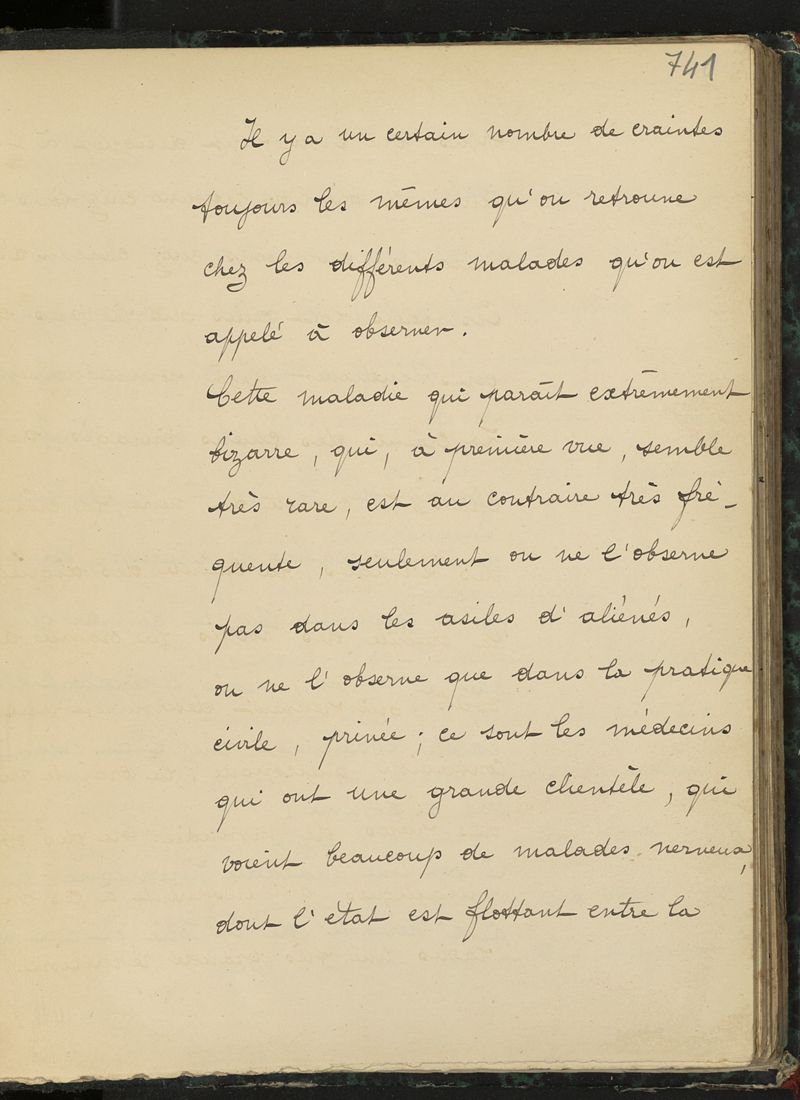 741
Il y a un certain nombre de craintes
toujours les mêmes qu'on retrouve
chez les différents malades qu'on est
appelé à observer.
Cette maladie qui paraît extrêmement
bizarre, qui, à première vue, semble
très rare, est au contraire très fré-
quente, seulement on ne l'observe
pas dans les asiles d'aliénés,
on ne l'observe que dans la pratique
civile, privée; ce sont les médecins
qui ont une grande clientèle, qui
voient beaucoup de malades nerveux,
dont l'état est flottant entre la